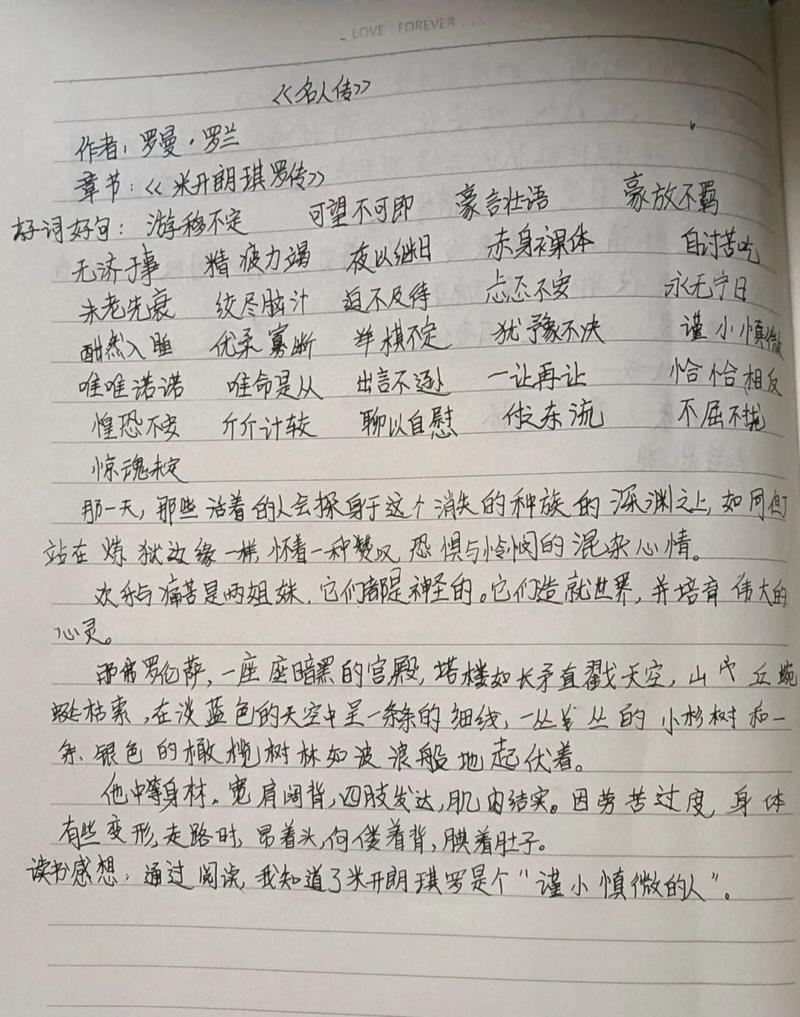 LOVE FOREVER...
《名人传》
作者：罗曼·罗兰
章节：《米开朗琪罗传》
好词好句：游移不定 可望不可即 豪言壮语 豪放不羁
无济于事 精疲力竭 夜以继日 赤身裸体 自讨苦吃
未老先衰 绞尽脑汁 迫不及待 忐忑不安 永无宁日
酣然入睡 优柔寡断 举棋不定 犹豫不决 谨小慎微
唯唯诺诺 唯命是从 出言不逊 一让再让 恰恰相反
惶恐不安 斤斤计较 聊以自慰 付之东流 不屈不挠
惊魂未定
那一天，那些活着的人会探身于这个消失的种族的深渊之上，如同们
站在炼狱边缘一样，怀着一种赞叹，恐惧与怜悯的混杂心情。
欢乐与痛苦是两姐妹，它们都是神圣的。它们造就世界，并培育伟大的
心灵。
那弗罗伦萨，一座座暗黑的宫殿，塔楼如长矛直戳天空，山丘蜿
蜒枯索，在淡蓝色的天空中呈一条条的细线，一丛丛的小杉树和一
条银色的橄榄树林如波浪般地起伏着。
他中等身材，宽肩阔背，四肢发达，肌肉结实。因劳苦过度，身体
有些变形，走路时，昂着头，佝偻着背，腆着肚子。
读书感想：通过阅读，我知道了米开朗琪罗是个“谨小慎微的人”。